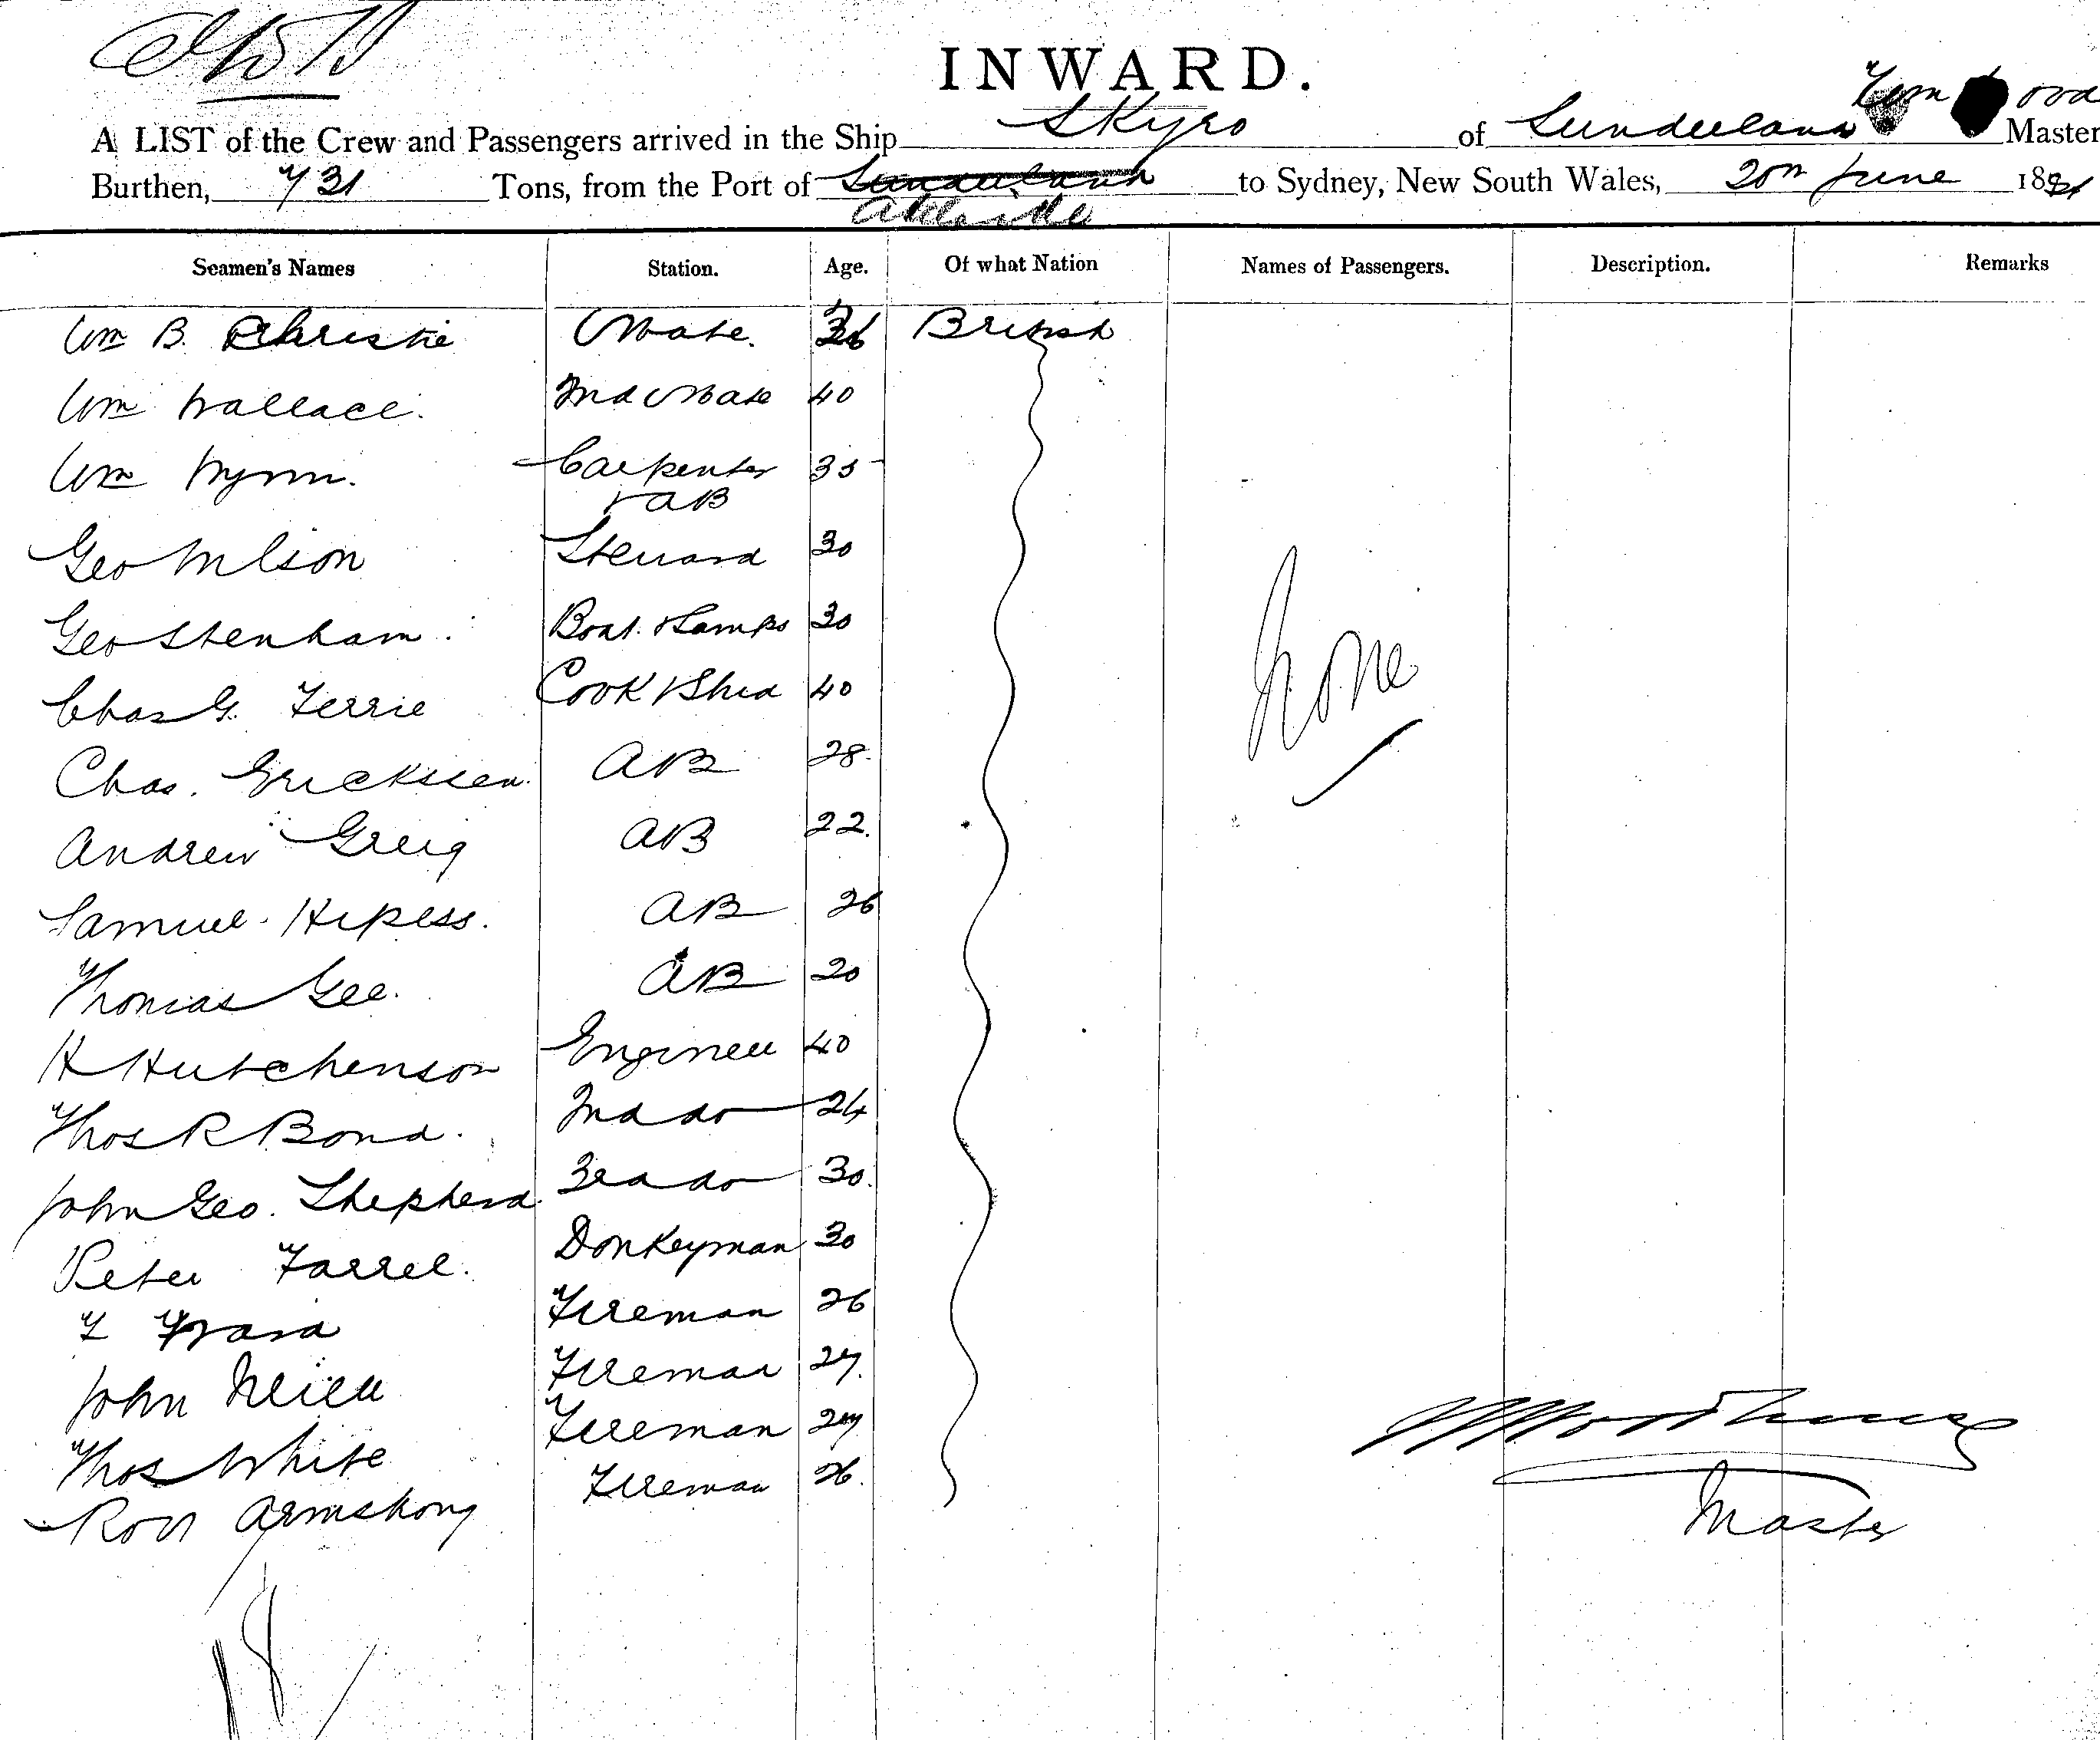 INWARD.
A LIST of the Crew and Passengers arrived in the Ship Skyro of Sunderland Wm Master
Burthen, 731 Tons, from the Port of Sunderland to Sydney, New South Wales, 20th June 18
Adelaide
Seamen's Names Station. Age. Of what Nation Names of Passengers. Description. Remarks
Wm B. Christie Mate. 36 British
Wm Wallace. 2nd Mate 40
Wm Wynn. Carpenter 35
+ AB
Geo Wilson Steward 30
Geo Stenham. Boat. & Lamps 30
None
Chas G. Ferrie Cook & Stwd 40
Chas. Ericksen. AB 28
Andrew Greig AB 22.
Samuel AB 26
Thomas Gee. AB 20
H Hutchenson Engineer 40
Thos R Bond. 2nd do 24
John Geo. Shepherd. 3rd do 30.
Peter Farrel. Donkeyman 30
F Ward Fireman 26
John Neill Fireman 27.
Thos White Fireman 27
Robt Armstrong Fireman 26.
Master
18